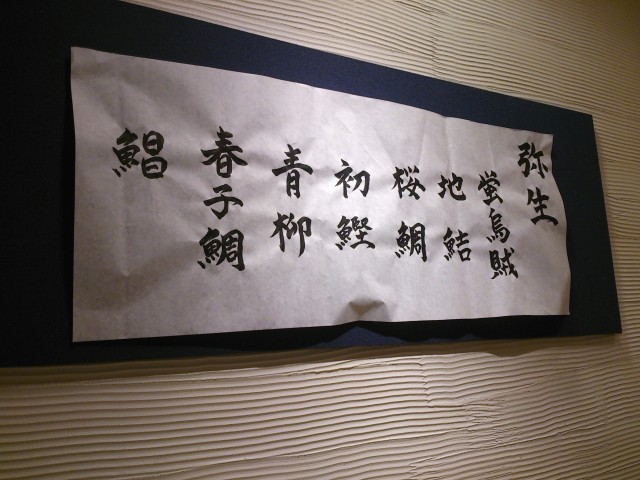 弥生
蛍烏賊
地鮚
桜鯛
初鰹
青柳
春子鯛
鯧